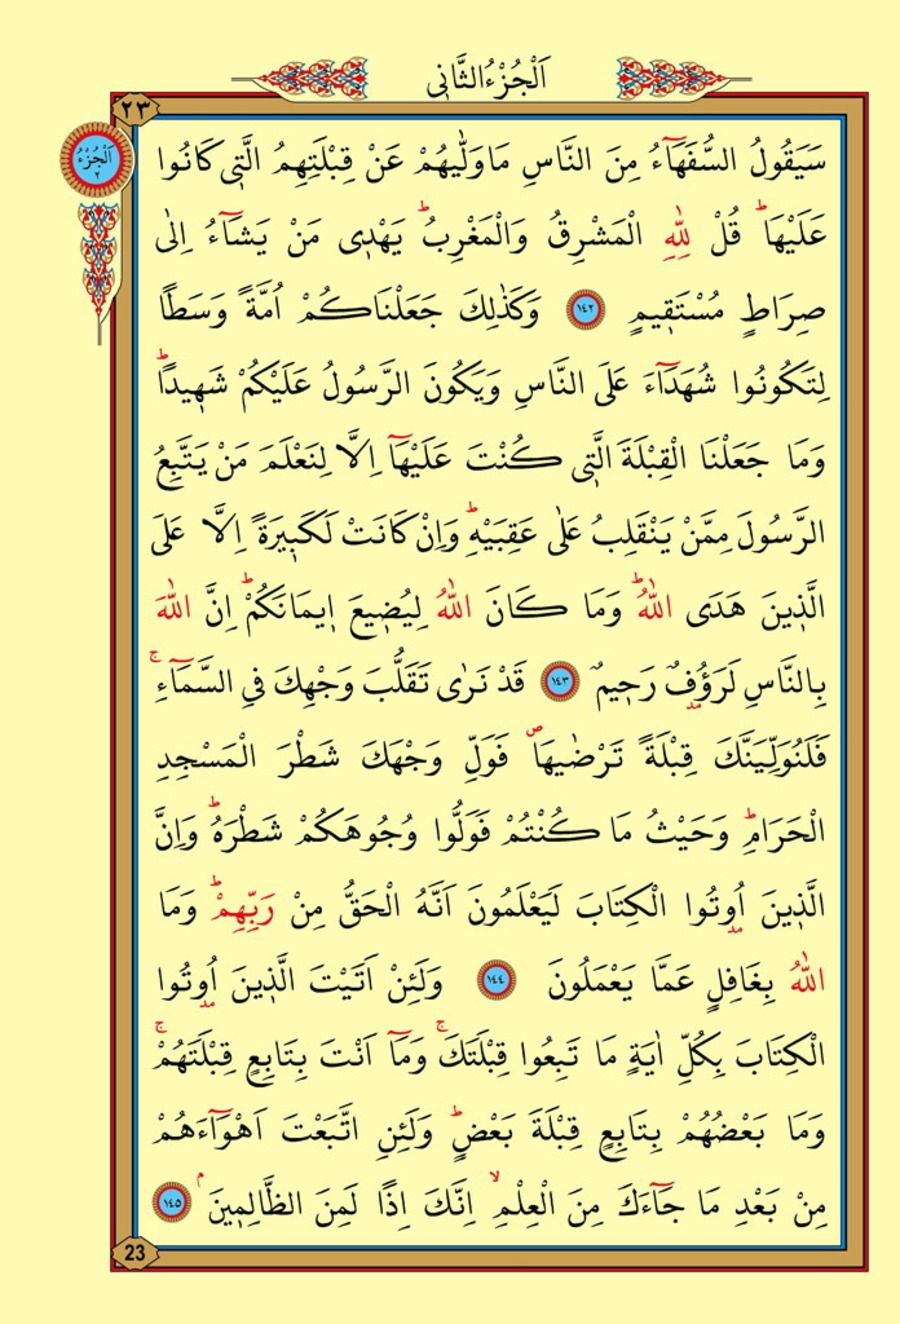 اَلْجُزْءُ الثَّانٖى
٢٣
اَلْجُزْءُ
٢
سَيَقُولُ السُّفَهَٓاءُ مِنَ النَّاسِ مَا وَلّٰيهُمْ عَنْ قِبْلَتِهِمُ الَّتٖى كَانُوا
عَلَيْهَاؕ قُلْ لِلّٰهِ الْمَشْرِقُ وَالْمَغْرِبُؕ يَهْدٖى مَنْ يَشَٓاءُ اِلٰى
صِرَاطٍ مُسْتَقٖيمٍ ١٤٢ وَكَذٰلِكَ جَعَلْنَاكُمْ اُمَّةً وَسَطًا
لِتَكُونُوا شُهَدَٓاءَ عَلَى النَّاسِ وَيَكُونَ الرَّسُولُ عَلَيْكُمْ شَهٖيدًاؕ
وَمَا جَعَلْنَا الْقِبْلَةَ الَّتٖى كُنْتَ عَلَيْهَٓا اِلَّا لِنَعْلَمَ مَنْ يَتَّبِعُ
الرَّسُولَ مِمَّنْ يَنْقَلِبُ عَلٰى عَقِبَيْهِؕ وَاِنْ كَانَتْ لَكَبٖيرَةً اِلَّا عَلَى
الَّذٖينَ هَدَى اللّٰهُؕ وَمَا كَانَ اللّٰهُ لِيُضٖيعَ اٖيمَانَكُمْؕ اِنَّ اللّٰهَ
بِالنَّاسِ لَرَؤُفٌ رَحٖيمٌ ١٤٣ قَدْ نَرٰى تَقَلُّبَ وَجْهِكَ فِى السَّمَٓاءِۚ
فَلَنُوَلِّيَنَّكَ قِبْلَةً تَرْضٰيهَاࣕ فَوَلِّ وَجْهَكَ شَطْرَ الْمَسْجِدِ
الْحَرَامِؕ وَحَيْثُ مَا كُنْتُمْ فَوَلُّوا وُجُوهَكُمْ شَطْرَهُؕ وَاِنَّ
الَّذٖينَ اُوتُوا الْكِتَابَ لَيَعْلَمُونَ اَنَّهُ الْحَقُّ مِنْ رَبِّهِمْؕ وَمَا
اللّٰهُ بِغَافِلٍ عَمَّا يَعْمَلُونَ ١٤٤ وَلَئِنْ اَتَيْتَ الَّذٖينَ اُوتُوا
الْكِتَابَ بِكُلِّ اٰيَةٍ مَا تَبِعُوا قِبْلَتَكَۚ وَمَٓا اَنْتَ بِتَابِعٍ قِبْلَتَهُمْۚ
وَمَا بَعْضُهُمْ بِتَابِعٍ قِبْلَةَ بَعْضٍؕ وَلَئِنِ اتَّبَعْتَ اَهْوَٓاءَهُمْ
مِنْ بَعْدِ مَا جَٓاءَكَ مِنَ الْعِلْمِۙ اِنَّكَ اِذًا لَمِنَ الظَّالِمٖينَۢ ١٤٥
23